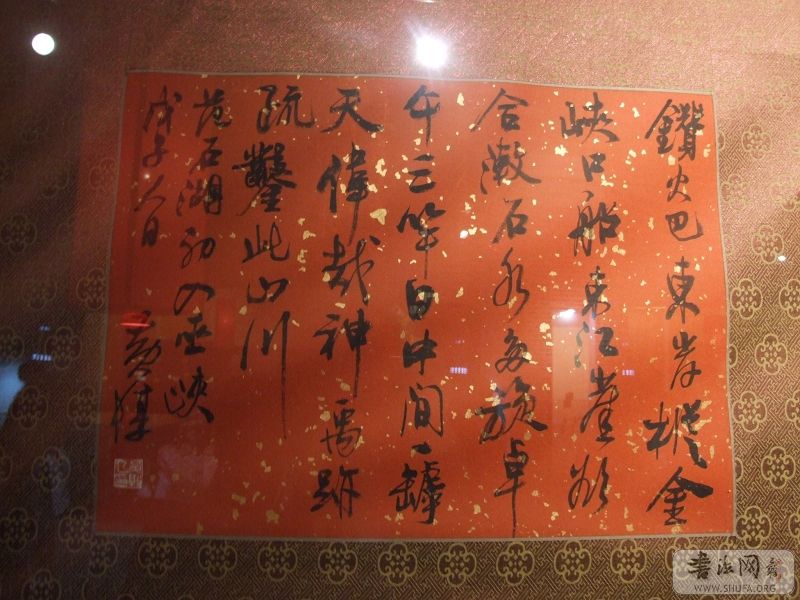 鑽火巴東岸摐金
峽口船束江崖欲
合漱石水多漩卓
午三竿日中間一罅
天偉哉神禹跡
疏鑿此山川
范石湖初入巫峽
戊子人日
書法网
WWW.SHUFA.ORG